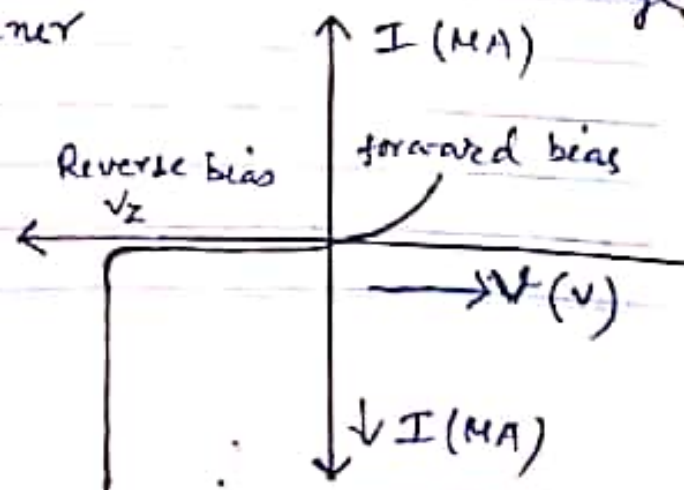 ner
I (MA)
Reverse bias
forward bias
Vz
V (V)
↓ I (MA)